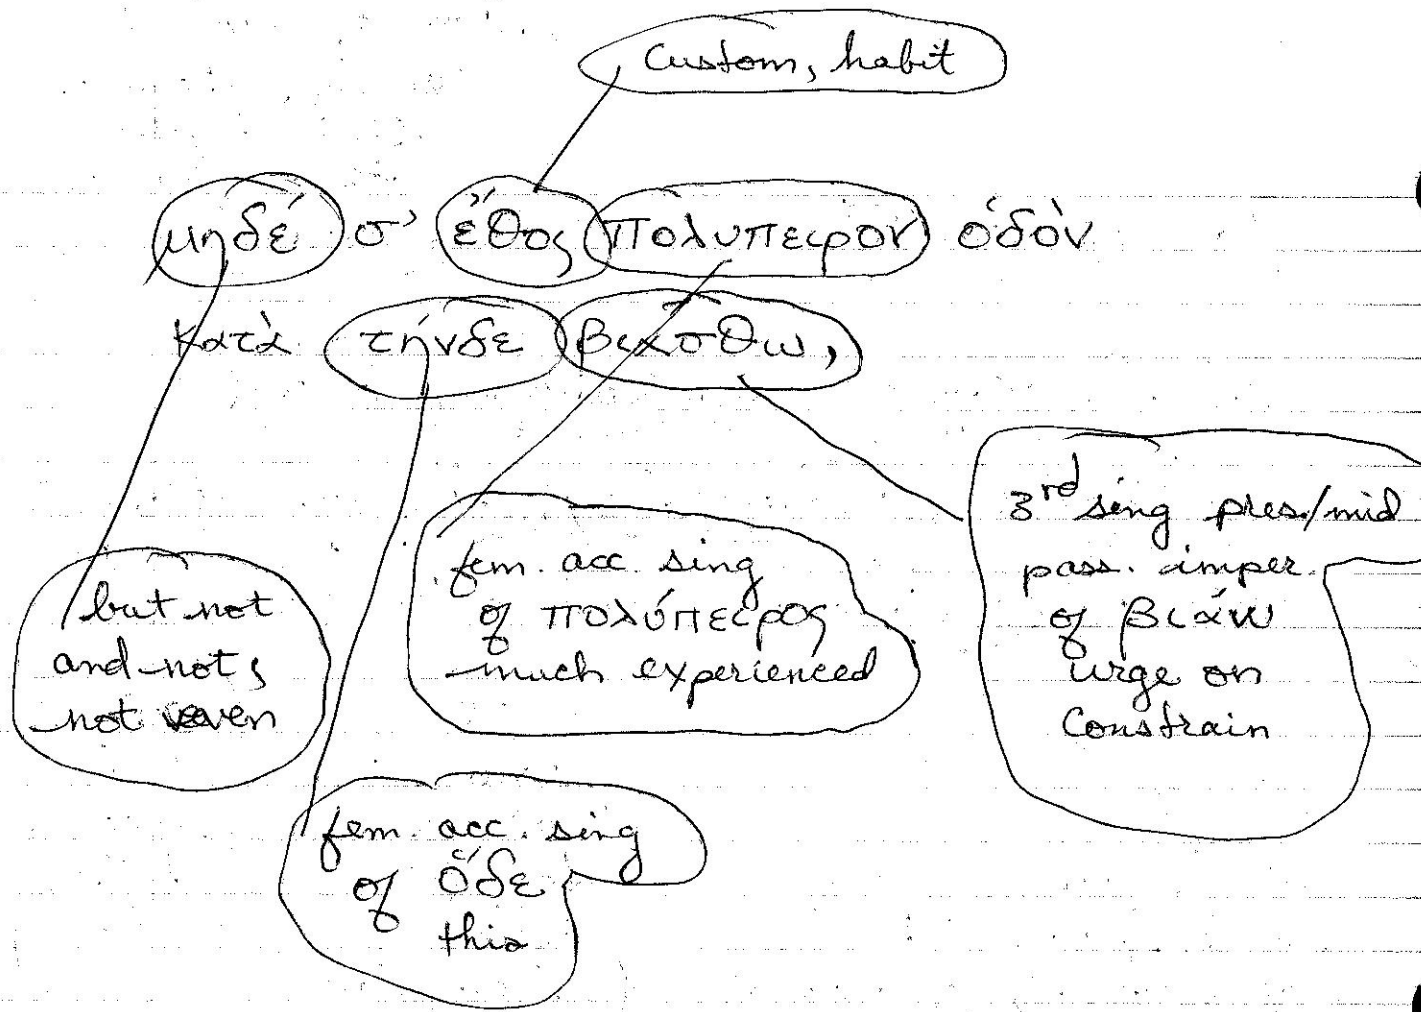 Custom, habit
μηδέ σ' ἔθος πολύπειρον ὁδὸν
κατὰ τήνδε βιάσθω,
but not
and not,
not even
fem. acc. sing
of πολύπειρος
much experienced
3rd sing pres./mid
pass. imper.
of βιάω
urge on
constrain
fem. acc. sing
of ὅδε
this